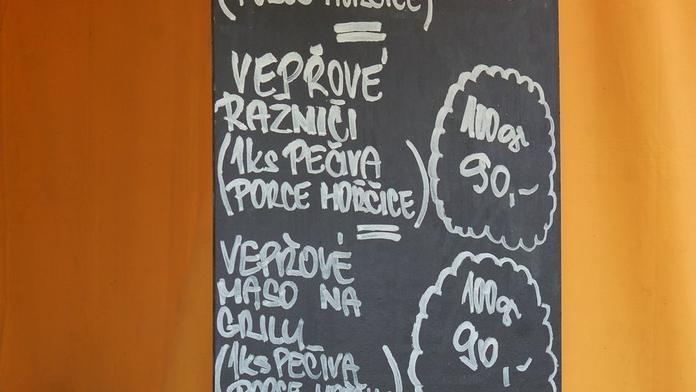 (PORCE HOŘČICE)
VEPŘOVÉ
RAZNIČI
(1ks PEČIVA
(PORCE HOŘČICE)
100gr
90,-
VEPŘOVÉ
MASO NA
GRILU
(1ks PEČIVA
PORCE
100gr
90,-